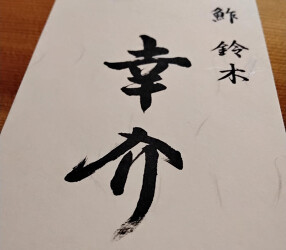 鮓 鈴木
幸介